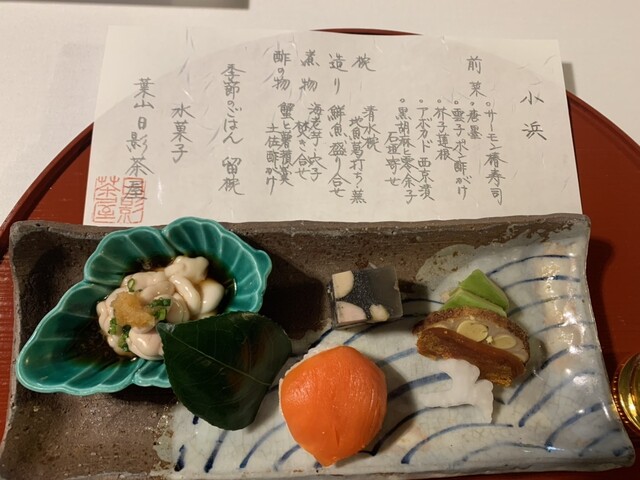 小浜
前菜
・サーモン椿寿司
・唐墨
・雲子ポン酢がけ
・芥子蓮根
・アボカド西京漬
・黒胡麻零余子
石垣寄せ
椀
清水椀
地魚葛打ち 蕪
造り
鮮魚盛り合せ
煮物
海老芋 穴子
焚き合せ
酢の物
蟹と薯蕷羹
土佐酢かけ
季節のごはん 留椀
水菓子
葉山 日影茶屋
日影茶屋